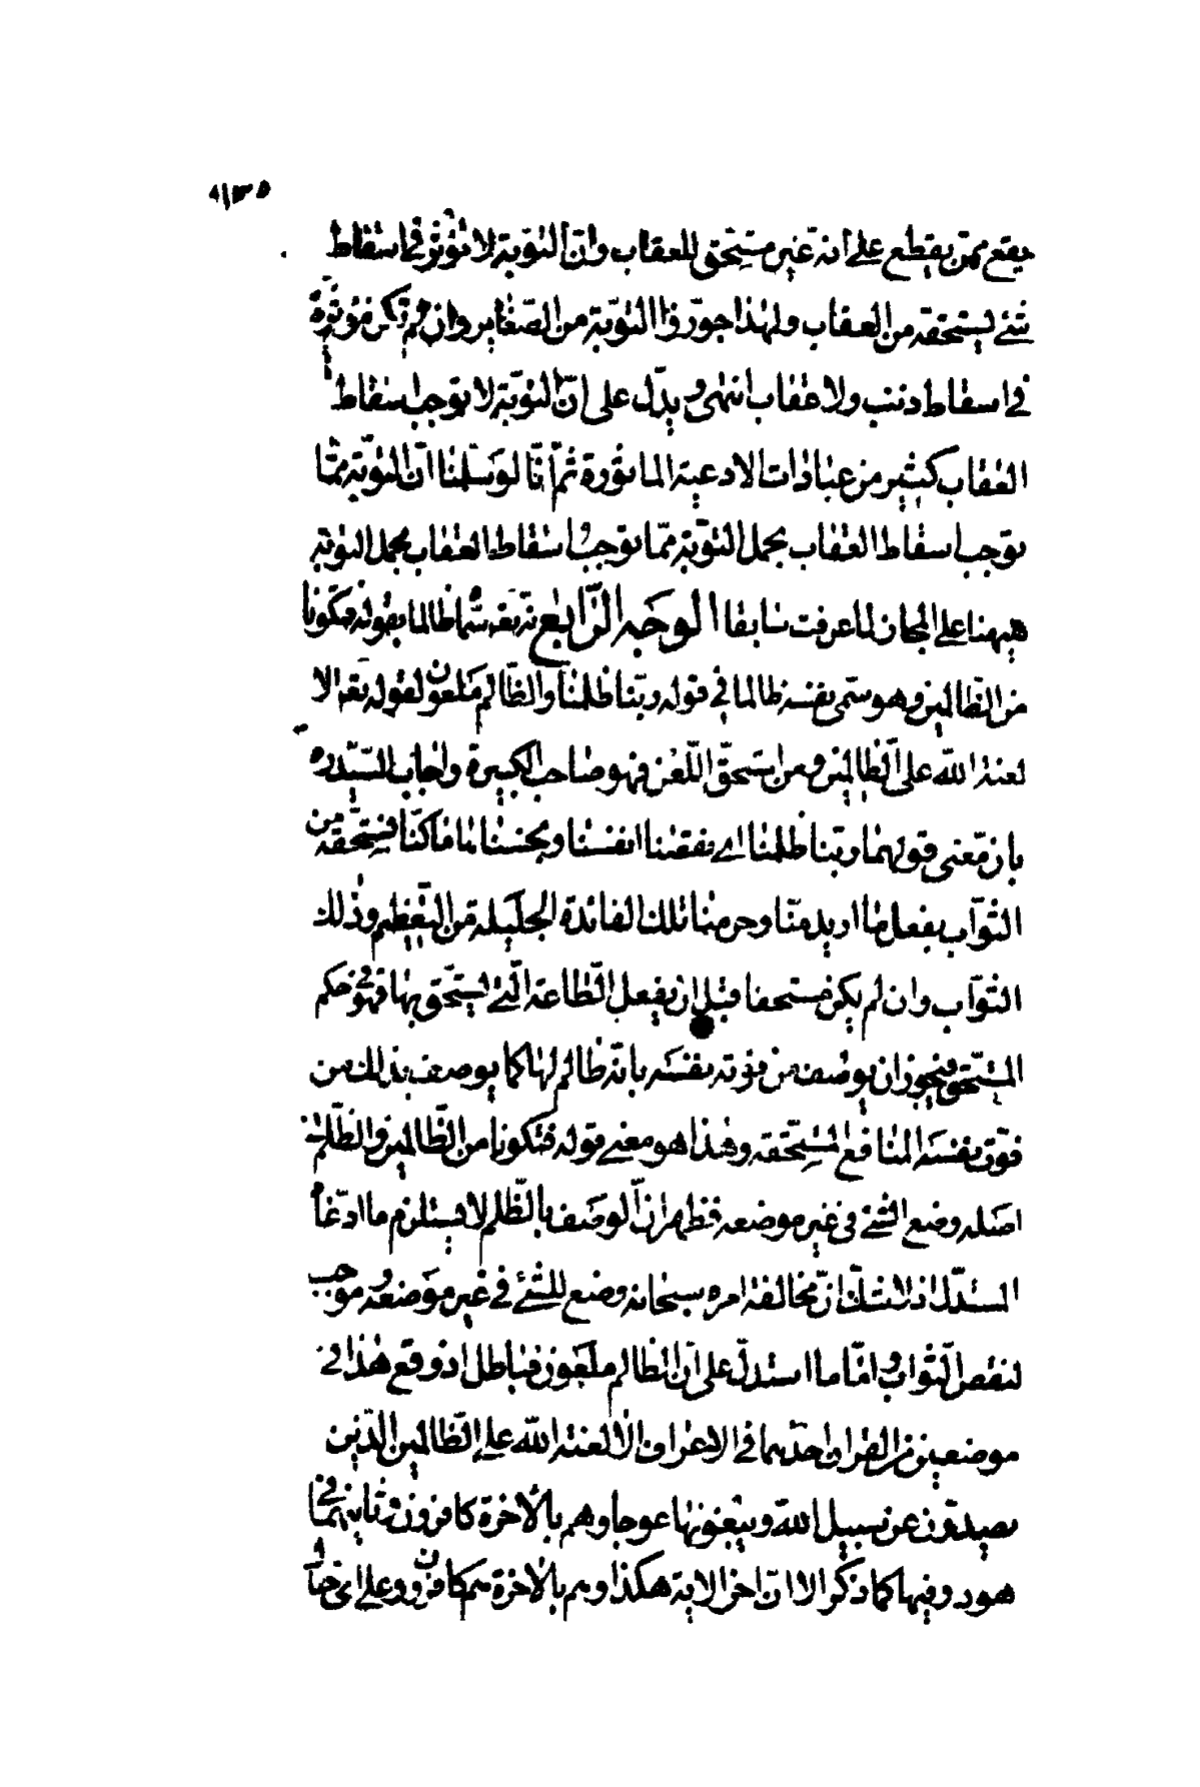 يقع ممن يقطع على انه غير مستحق للعقاب وان التوبة لا تؤثر في اسقاط
شئ يستحقه من العقاب ولهذا جوّزوا التوبة من الصغاير وان لم تكن مؤثرة
في اسقاط ذنب ولا عقاب انتهى ويدل على انّ التوبة لا توجب اسقاط
العقاب كثير من عبارات الادعية الماثورة ثم انّا لو سلمنا انّ التوبة ممّا
توجب اسقاط العقاب يحمل التوبة ممّا توجب اسقاط العقاب يحمل التوبة
هيهنا على المجاز لما عرفت سابقا الوجه الرّابع انه تعه سمّاه ظالما بقوله فتكونا
من الظّالمين وهو سمّى نفسه ظالما في قوله ربّنا ظلمنا والظّالم ملعون لقوله تعه الا
لعنة الله على الظالمين ومن استحقّ اللّعن فهو صاحب الكبيرة واجاب السّيّد ره
بان معنى قولهما ربّنا ظلمنا اي نقصنا انفسنا وبخسناها ما كنّا نستحقه من
الثّواب بفعل ما اريد منّا وحرمنا تلك الفائدة الجليلة من التّعظيم وذلك
الثّواب وان لم يكن مستحقا قبل ان يفعل الطّاعة الّتي يستحّق بها فهو في حكم
المستحق فيجوز ان يوصف من فوته نفسه بانّه ظالم لها كما يوصف بذلك من
فوّت نفسه المنافع المستحّقه وهذا هو معنى قوله فتكونا من الظّالمين والظّلم في
اصله وضع الشئ في غير موضعه فظهر انّ الوصف بالظّلم لا يستلزم ما ادّعاه
المستدّل اذ لا شكّ انّ مخالفة امره سبحانه وضع للشئ في غير موضعه وموجب
لنقص الثّواب وامّا ما استدلّ على انّ الظالم ملعون فباطل اذ وقع هذا في
موضعين من القران احدهما في الاعراف الا لعنة الله على الظّالمين الّذين
يصدّون عن سبيل الله ويبغونها عوجا وهم بالاخرة كافرون وثانيهما في
هود وفيها كما ذكر الا انّ اخر الاية هكذا وهم بالاخرة هم كافرون وعلى اى حال